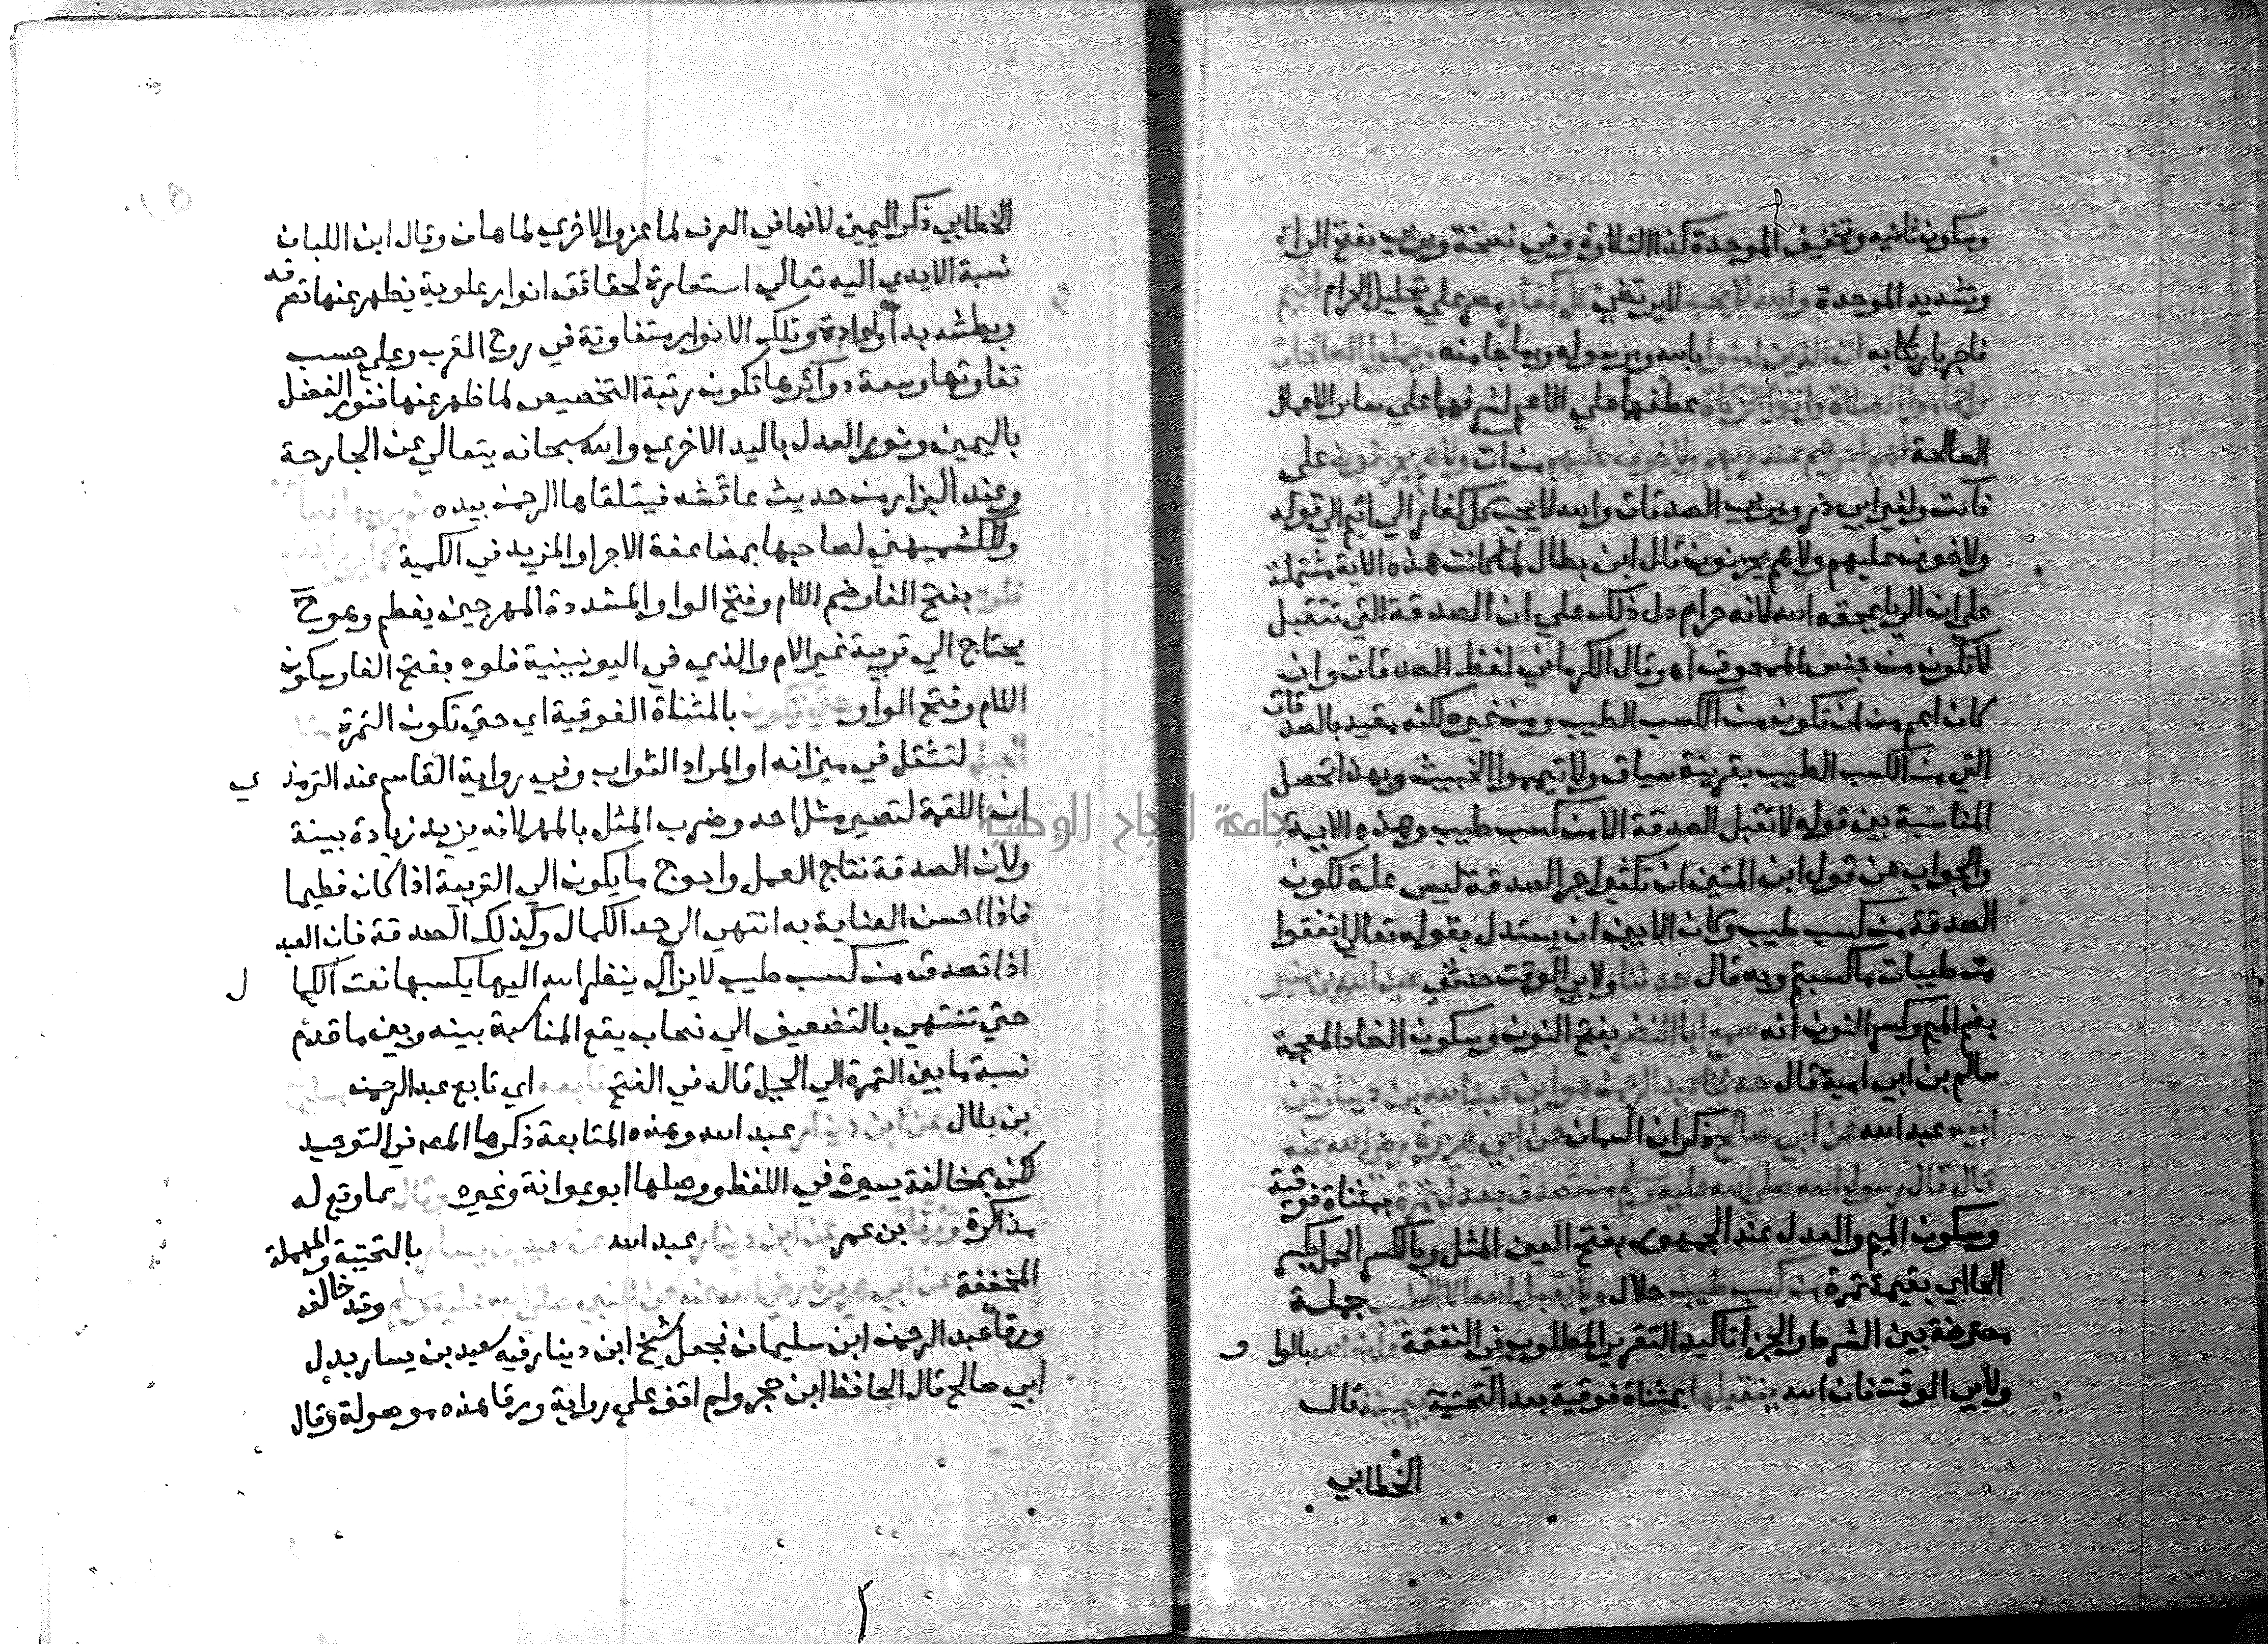 وسكون ثانيه وتخفيف الموحدة كذا التلاوة وفي نسخة ويربي بفتح الراء
وتشديد الموحدة والله لا يحب لا يرتضي كل كفار مصر علي تحليل الحرام اثيم
فاجر بارتكابه ان الذين امنوا بالله وبرسوله وبما جا منه وعملوا الصالحات
واقاموا الصلاة واتوا الزكاة عطفها علي الاعم لشرفها علي ساير الاعمال
الصالحة لهم اجرهم عند ربهم ولا خوف عليهم من ات ولا هم يحزنون علي
فائت ولغير ابي ذر ويربي الصدقات والله لا يحب كل كفار الي اثيم الي قوله
ولا خوف عليهم ولا هم يحزنون قال ابن بطال لما كانت هذه الاية مشتملة
علي ان الربا يمحقه الله لانه حرام دل ذلك علي ان الصدقة التي تتقبل
لا تكون من جنس الممحوق اه وقال الكرماني لفظ الصدقات وان
كان اعم من ان تكون من الكسب الطيب ومن غيره لكنه مقيد بالصدقات
التي من الكسب الطيب بقرينة سياق ولا تيمموا الخبيث وبهذا تحصل
المناسبة بين قوله لا تقبل الصدقة الا من كسب طيب وهذه الاية
والجواب عن قول ابن المتين ان تكثير اجر الصدقة ليس علة لكون
الصدقة من كسب طيب وكان الابين ان يستدل بقوله تعالي انفقوا
من طيبات ما كسبتم وبه قال حدثنا ولابي الوقت حدثني عبد الله بن منير
بضم الميم وكسر النون انه سمع ابا النضر بفتح النون وسكون الضاد المعجمة
سالم بن ابي امية قال حدثنا عبد الرحمن هو ابن عبد الله بن دينار عن
ابيه عبد الله عن ابي صالح ذكوان السمان عن ابي هريرة رضي الله عنه
قال قال رسول الله صلي الله عليه وسلم من تصدق بعدل تمرة بمثناة فوقية
وسكون الميم والعدل عند الجمهور بفتح العين المثل وبالكسر الحمل بكسر
الحا اي بقيمة تمرة من كسب طيب حلال ولا يقبل الله الا الطيب جملة
معترضة بين الشرط والجزا تاكيد التقرير المطلوب في النفقة وان الله بالوا و
ولابي الوقت فان الله يتقبلها بمثناة فوقية بعد التحتية بيمينه قال
الخطابي
الخطابي ذكر اليمين لانها في العرف لما عز والاخري لما هان وقال ابن اللبان
نسبة الايدي اليه تعالي استعارة لحقائق انوار علوية يظهر عنها تصرفه
وبطشه بدأ واعادة وتلك الانوار متفاوتة في روح القرب وعلي حسب
تفاوتها وسعة دوائرها تكون رتبة التخصيص لما ظهر عنها فنور الفضل
باليمين ونور العدل باليد الاخري والله سبحانه يتعالي عن الجارحة
وعند البزار من حديث عائشه فيتلقاها الرحمن بيده
وللكشميهني لصاحبها بمضاعفة الاجر او المزيد في الكمية
فلوه بفتح الفا وضم اللام وفتح الواو المشددة المهر حين يفطم وهو ح
يحتاج الي تربية غير الام والذي في اليونينية فلوه بفتح الفا وسكون
اللام وفتح الواو حتي تكون بالمثناة الفوقية اي حتي تكون التمرة
الجبل لتثقل في ميزانه او المراد الثواب وفي رواية القاسم عند الترمذ ي
ان اللقمة لتصير مثل احد وضرب المثل بالمهر لانه يزيد زيادة بينة
ولان الصدقة نتاج العمل واحوج ما يكون الي التربية اذا كان فطيما
فاذا احسن العناية به انتهي الي حد الكمال وكذلك الصدقة فان العبد
اذا تصدق من كسب طيب لا يزال ينظر الله اليها يكسبها نعت الكما ل
حتي تنتهي بالتضعيف الي نصاب يقع المناسبة بينه وبين ما قدم
نسبة ما بين التمرة الي الجبل قاله في الفتح تابعه اي تابع عبد الرحمن
بن بلال عن ابن دينار عبد الله وهذه المتابعة ذكرها المصه في التوحيد
لكن بمخالفة يسيرة في اللفظ ووصلها ابو عوانة وغيره مما وقع له
مذاكرة وورقا بن عمر عن ابن دينار عبد الله بالتحتية والمهملة
المخففة عن ابي هريرة رضي الله عنه عن النبي صلي الله عليه وسلم وقد خالف
ورقا عبد الرحمن ابن سليمان فجعل شيخ ابن دينار فيه سعيد بن يسار بدل
ابي صالح قال الحافظ ابن حجر ولم اقف علي رواية ورقا هذه موصولة وقال
جامعة النجاح الوطنية